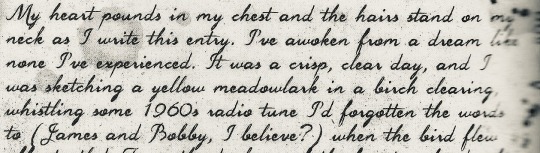 My heart pounds in my chest and the hairs stand on my
neck as I write this entry. I've awoken from a dream like
none I've experienced. It was a crisp, clear day, and I
was sketching a yellow meadowlark in a birch clearing,
whistling some 1960s radio tune I'd forgotten the words
to (James and Bobby, I believe?) when the bird flew